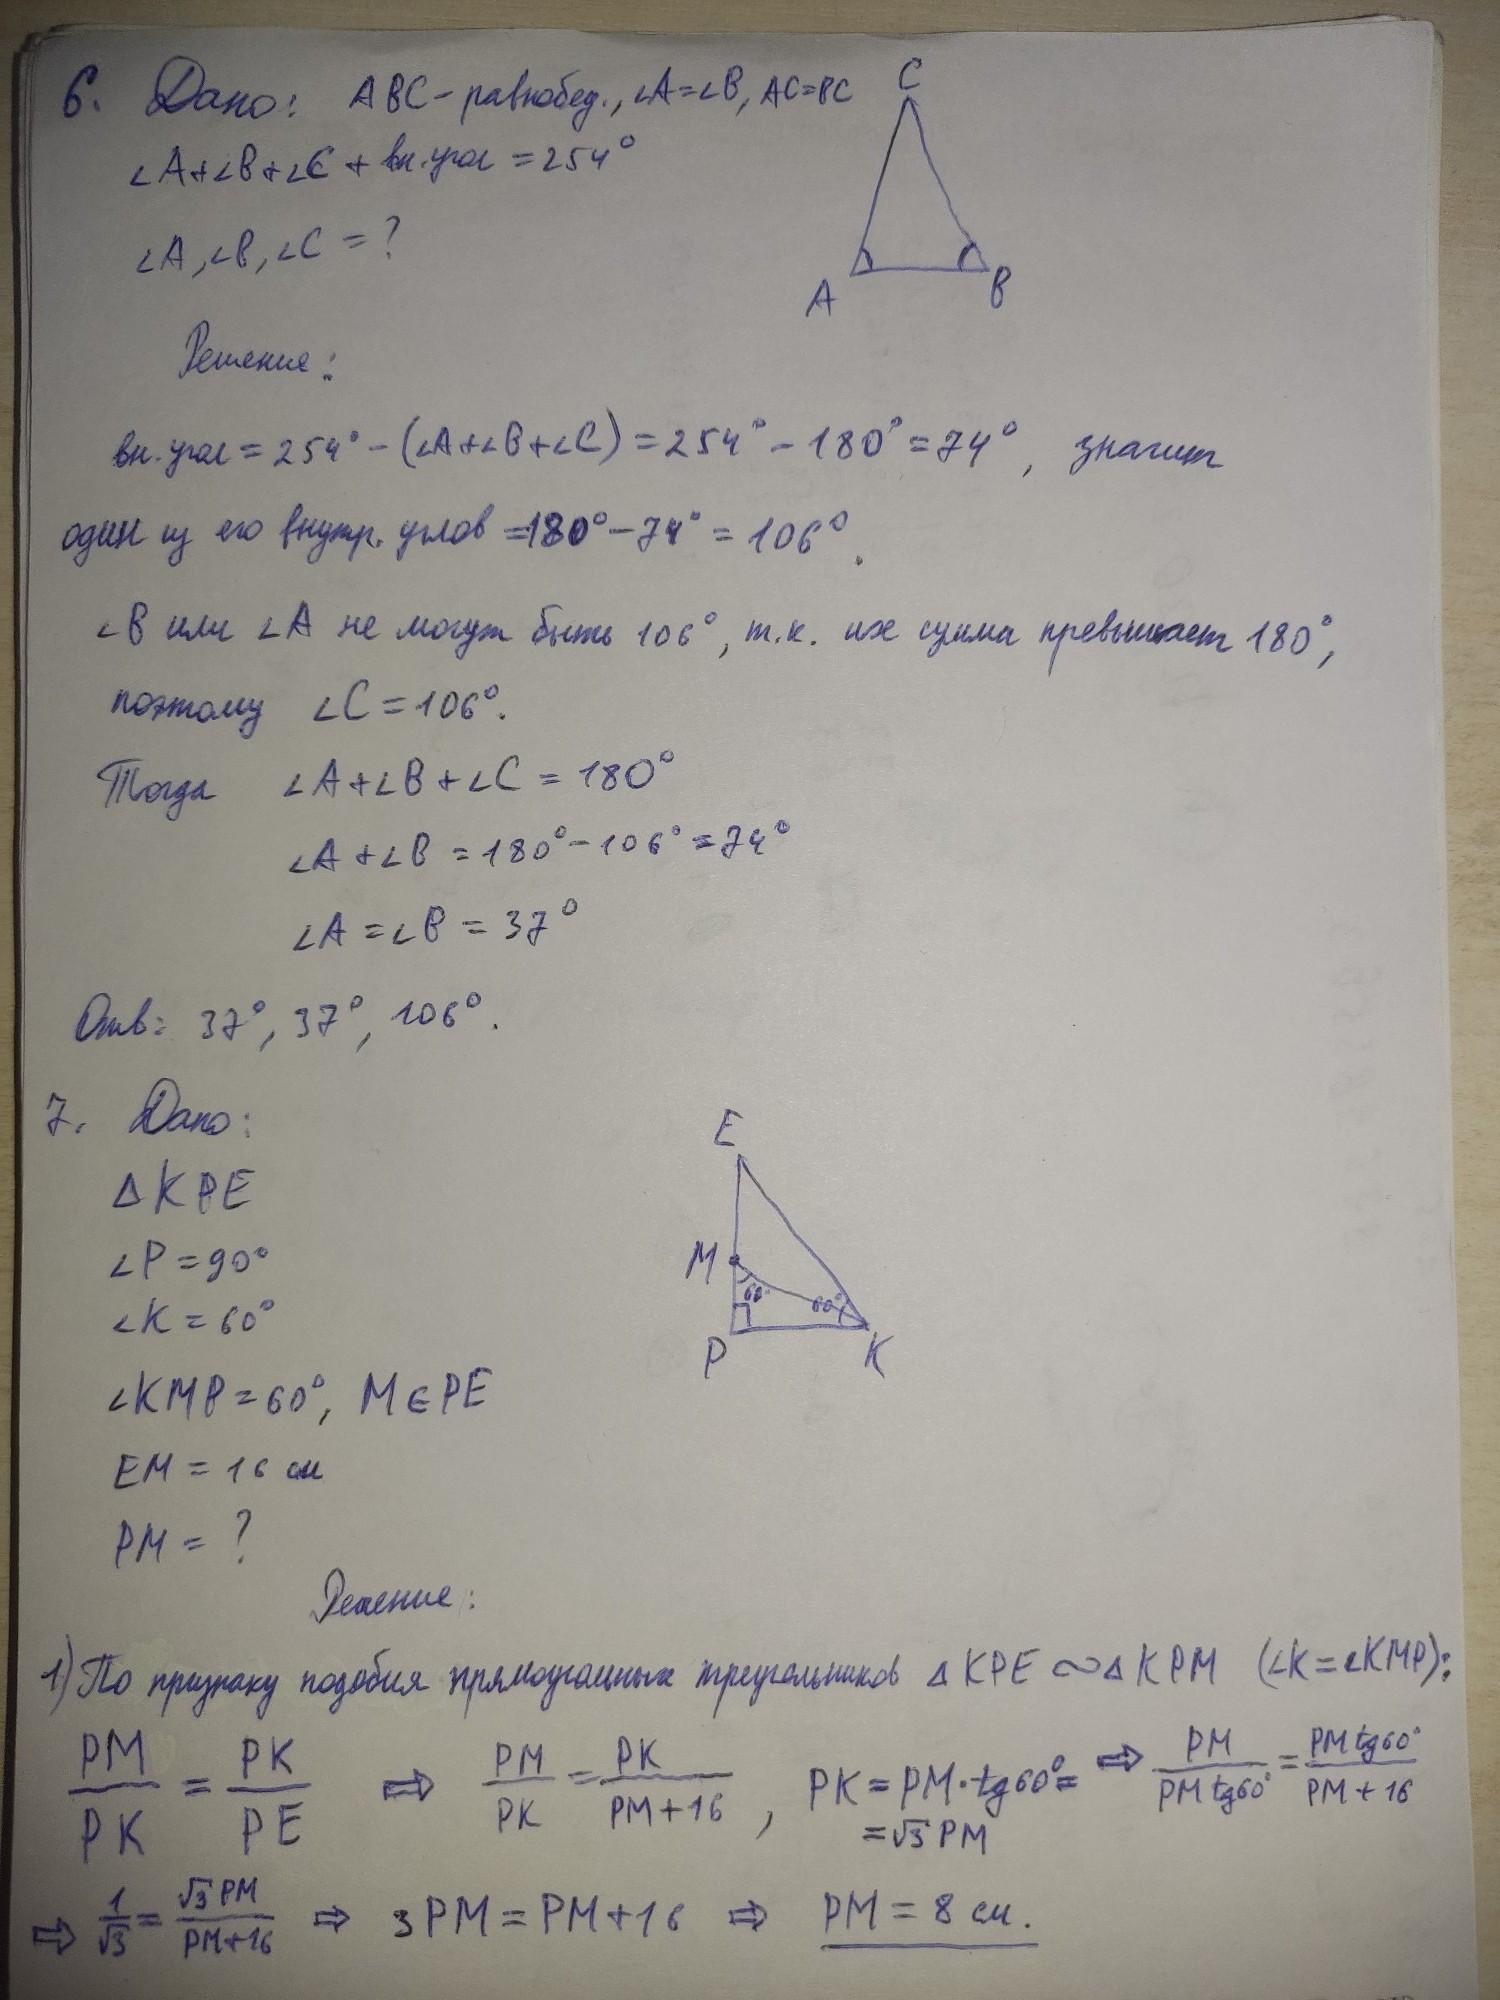 6. Дано: ABC - равнобед., ∠A=∠B, AC=BC
∠A+∠B+∠C + вн.угол = 254°
∠A, ∠B, ∠C = ?
C
A
B
Решение:
вн.угол = 254° - (∠A+∠B+∠C) = 254° - 180° = 74°, значит
один из его внутр. углов = 180° - 74° = 106°.
∠B или ∠A не могут быть 106°, т.к. их сумма превышает 180°,
поэтому ∠C = 106°.
Тогда ∠A+∠B+∠C = 180°
∠A+∠B = 180° - 106° = 74°
∠A = ∠B = 37°
Отв: 37°, 37°, 106°.
7. Дано:
△KPE
∠P = 90°
∠K = 60°
∠KMP = 60°, M∈PE
EM = 16 см
PM = ?
E
M
60°
60°
P
K
Решение:
1) По признаку подобия прямоугольных треугольников △KPE ∾ △KPM (∠K=∠KMP):
PM/PK = PK/PE ⇒ PM/PK = PK/(PM+16), PK = PM·tg60° = = √3 PM ⇒ PM/(PM tg60°) = PM tg60°/(PM+16)
⇒ 1/√3 = √3 PM/(PM+16) ⇒ 3PM = PM+16 ⇒ PM = 8 см.